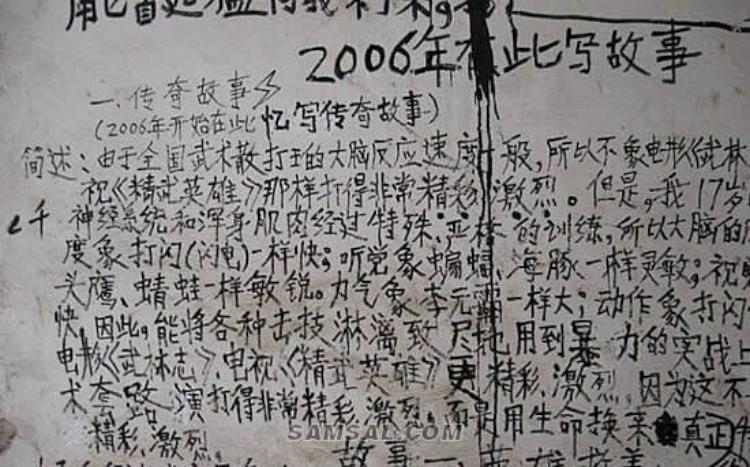 2006年在此写故事
一.传奇故事
(2006年开始在此忆写传奇故事)
简述:由于全国武术散打王的大脑反应速度一般,所以不象电影《武林
视《精武英雄》那样打得非常精彩,激烈。但是,我17岁
神经系统和浑身肌肉经过特殊,严格的训练,所以大脑的
度象打闪(闪电)一样快;听觉象蝙蝠、海豚一样灵敏;视
头鹰、蜻蛙一样敏锐。力气象李元霸一样大;动作象打闪
快,因此,能将各种击技淋漓致尽地用到暴力的实战上
电影《武林志》,电视《精武英雄》更精彩,激烈,因为这不
术套路,演打得非常精彩,激烈,而是用生命换来真正
精彩,激烈。
SAMSAL.COM
故事一